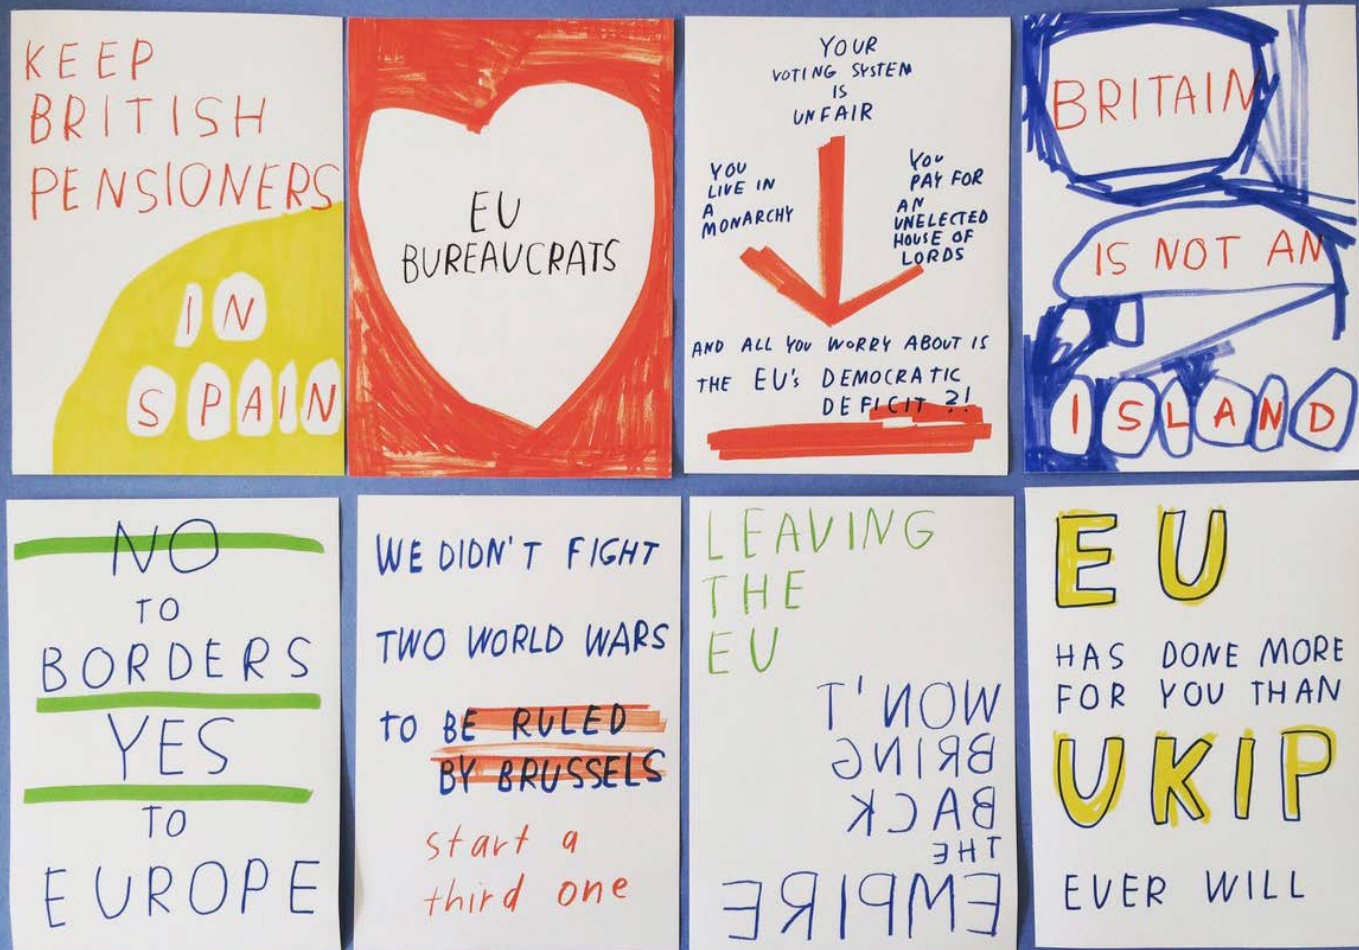 KEEP
BRITISH
PENSIONERS
IN
SPAIN
EU
BUREAUCRATS
YOUR
VOTING SYSTEM
IS
UNFAIR
YOU
LIVE IN
A
MONARCHY
YOU
PAY FOR
AN
UNELECTED
HOUSE OF
LORDS
AND ALL YOU WORRY ABOUT IS
THE EU's DEMOCRATIC
DEFICIT ?!
BRITAIN
IS NOT AN
ISLAND
NO
TO
BORDERS
YES
TO
EUROPE
WE DIDN'T FIGHT
TWO WORLD WARS
TO BE RULED
BY BRUSSELS
start a
third one
LEAVING
THE
EU
WON'T
BRING
BACK
THE
EMPIRE
EU
HAS DONE MORE
FOR YOU THAN
UKIP
EVER WILL